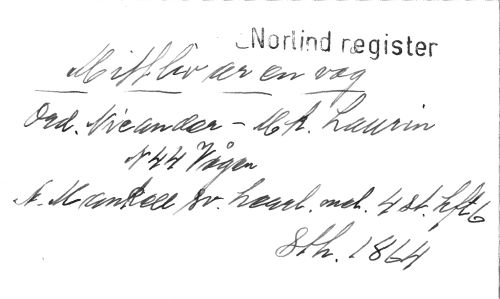 Norlind register
Mitt liv är en våg
Ord. Nicander - M. A. Laurin
N 44 Vågen
N. Mankell sv. handl. med. 4 st. hft 6
Sth. 1864